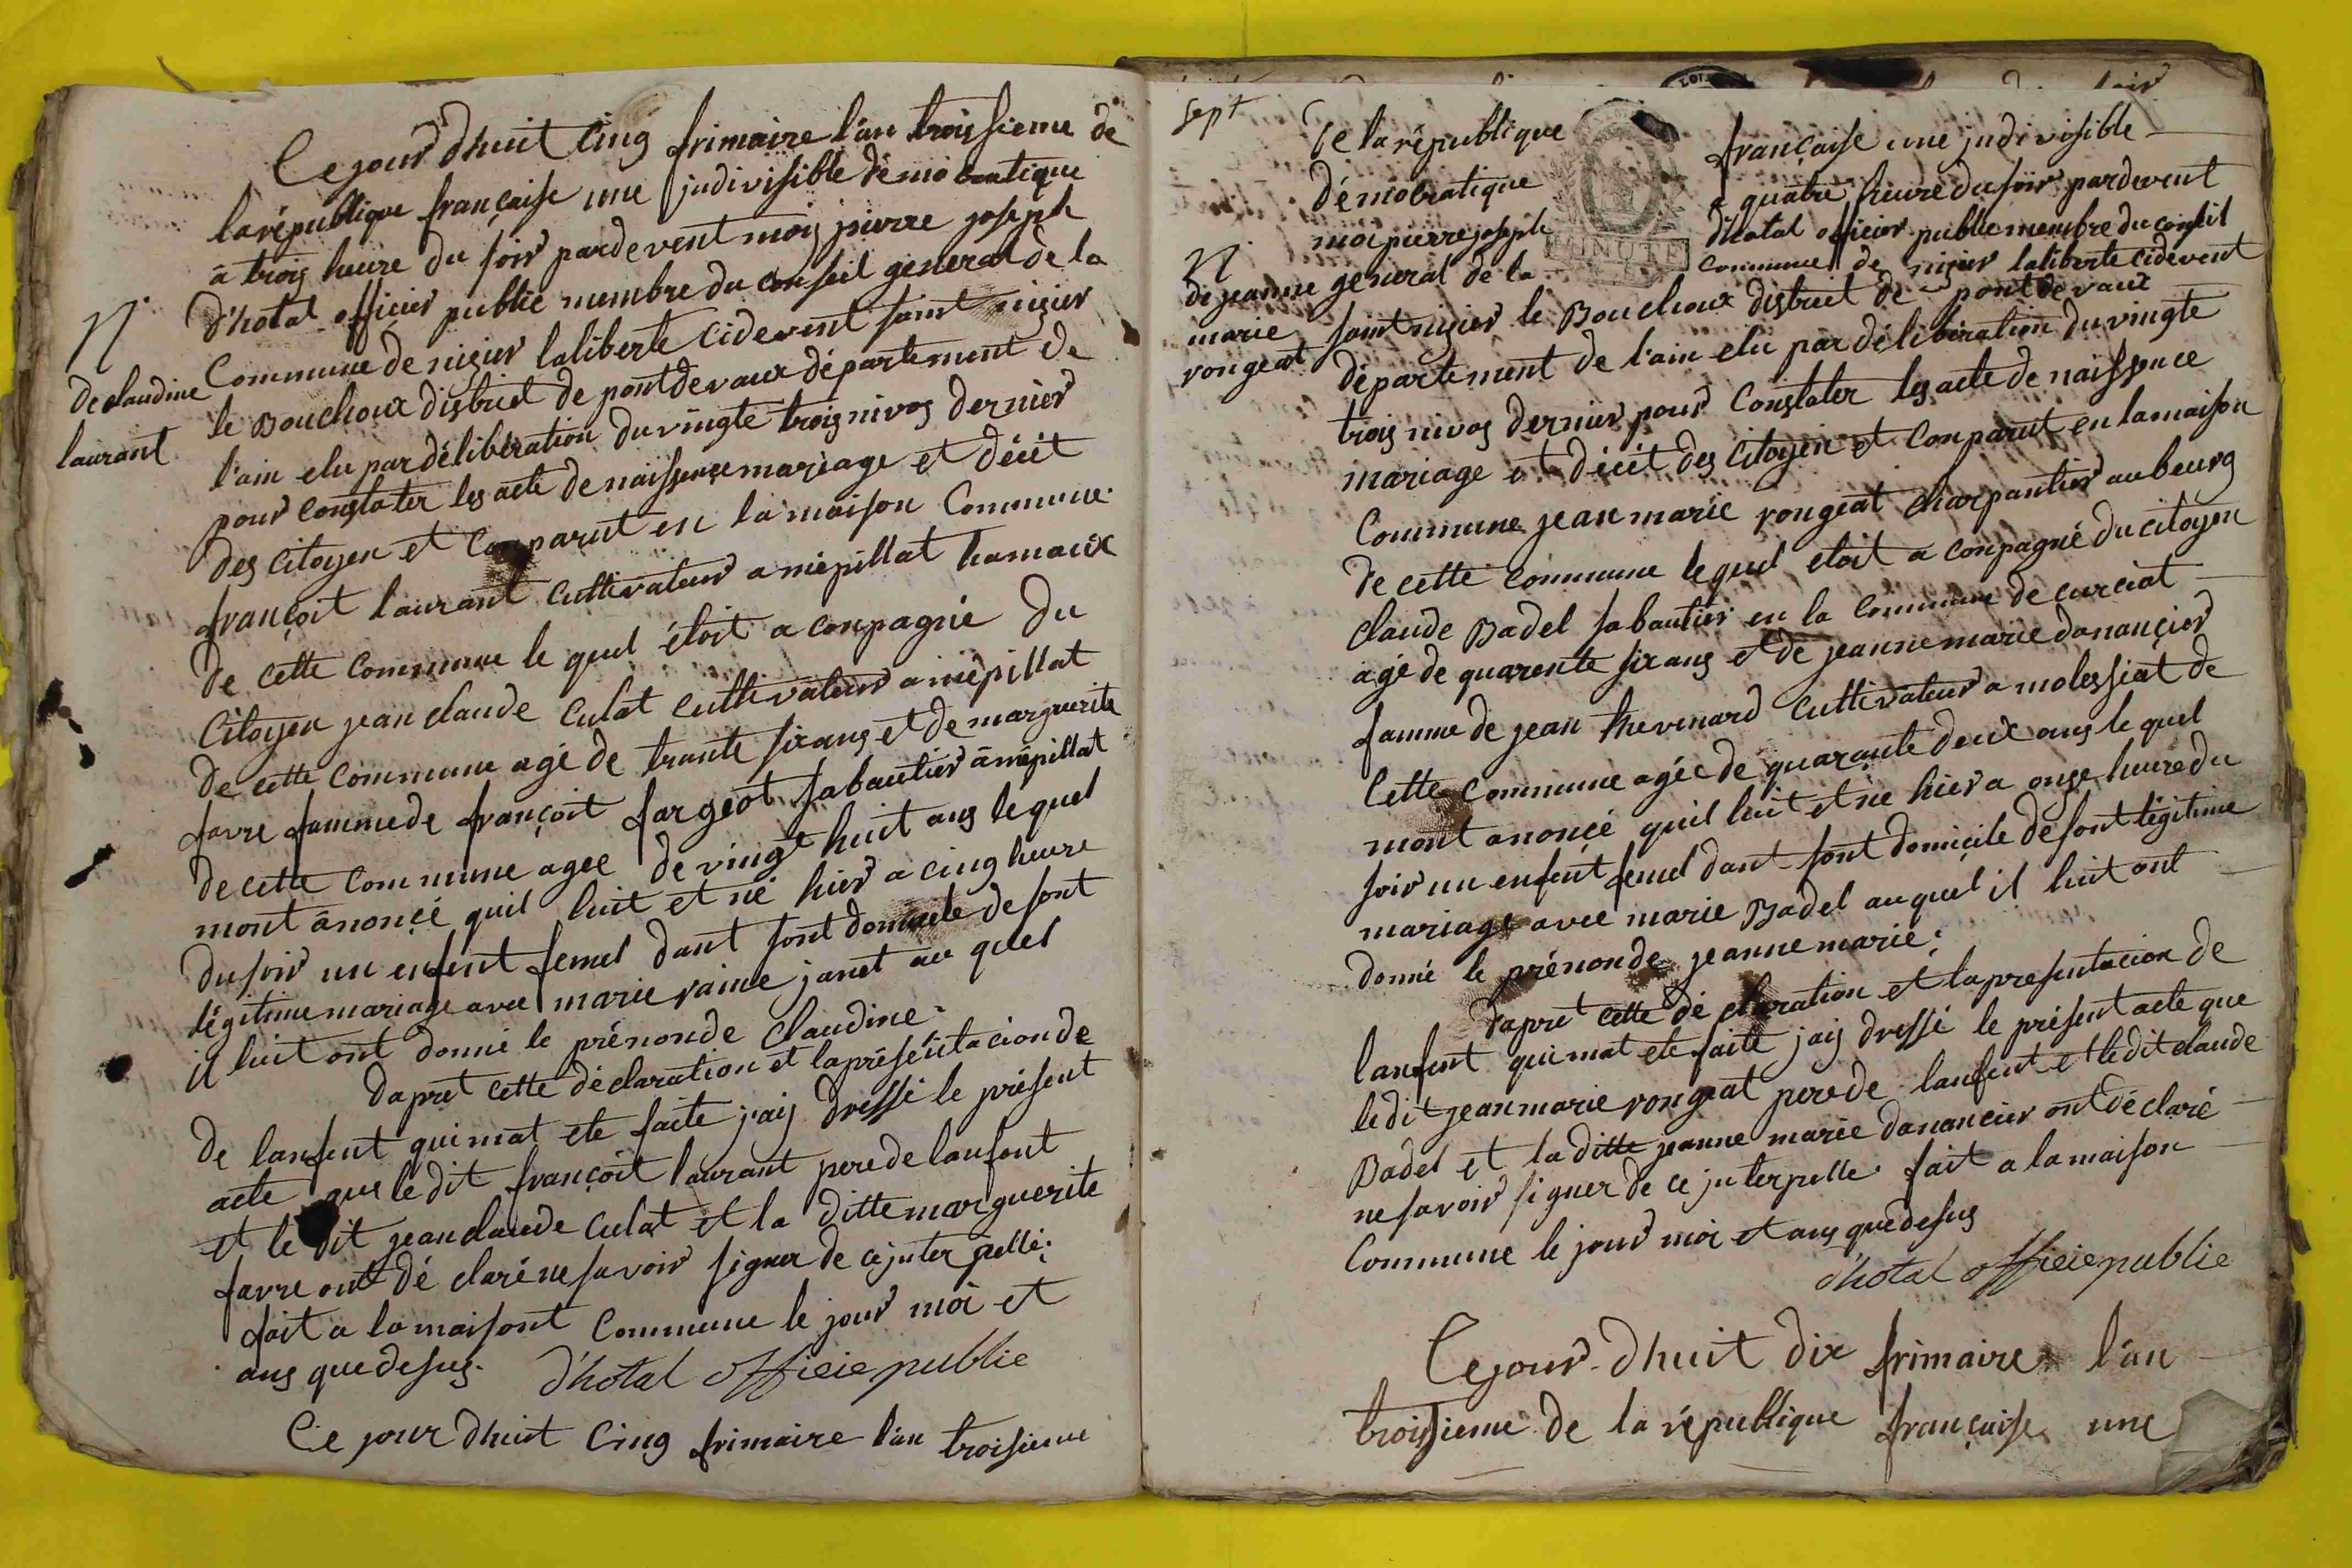 Cejour dhuit cinq frimaire l'an troissieme de
la république françaisse une judivisible démocratique
à trois heure du soir pardevent mois pierre joseph
d'hotal officier public membre du conseil general de la
N.
Commune de nisier laliberté cidevent saint nisier
de claudine
laurant
le Bouchoux distriet de pontdevaux département de
l'ain elu par délibération du vingte trois nivos dernier
pour constater les acte de naissence mariage et décet
des citoyen et conparut en la maison Commune
françoit laurant cultivateur a mépillat hamaux
de cette commune le quel étoit a conpagné du
Citoyen jean claude culat cultivateur a mépillat
de cette commune agé de trante six ans et de marguerite
favre famme de françoit fargeot sabautier à mépillat
de cette commune agée de vingt huit ans lequel
mont anoncé quil luit et né hier a cinq heure
du soir un enfent femel dant sont domicile de sont
légitime mariage avec marie raine janet au quel
il luit ont donné le prénonde claudine.
dapret cette déclaration et la présentacion de
de lanfent qui mat ete faite jais dressé le présent
acte que le dit françoit laurant pere de lanfent
et le dit jean claude culat et la ditte marguerite
favre ont dé claré ne savoir signer de ce juter pellé.
fait a la maisont commune le jour moi et
ans que desus. d'hotal officie public
Ce jour dhuit cinq frimaire l'an troisieme
sept
de la république françaisse une judivisible
démocratique a quatre heure du soir pardevent
moi pierre joseph d'hotal officier public membre du conseil
MINUTE
N.
de jeanne
marie
rongeat
general de la commune de nisier laliberté cidevent
saint nisier le Bouchoux distriet de pont de vaux
département de l'ain elu par délibération du vingte
trois nivos dernier pour constater les acte de naissence
mariage et décét des citoyen et conparut en la maison
Commune jean marie rongeat charpantier au bourg
de cette commune le quel etoit a conpagné du citoyen
claude Badel sabautier en la commune de curciat
agé de quarente six ans et de jeanne marie danancier
famme de jean thevenard cultivateur a molessiat de
Cette commune agée de quarante deux ans le quel
mont anoncé quil luit et né hier a onze heure du
soir un enfent femel dant sont domicile de sont légitime
mariage avec marie Badel au quel il luit ont
donné le prénonde jeanne marie.
dapret cette dé claration et la presentacion de
lanfent qui mat ete faite jais dressé le présent acte que
le dit jean marie rongeat pere de lanfent et le dit claude
Badel et la ditte jeanne marie danancier ont déclaré
ne savoir signer de ce juterpelle. fait a la maison
Commune le jour moi et ans que desus
d'hotal officie public
Cejour dhuit dix frimaire l'an
troissieme de la république françaisse une